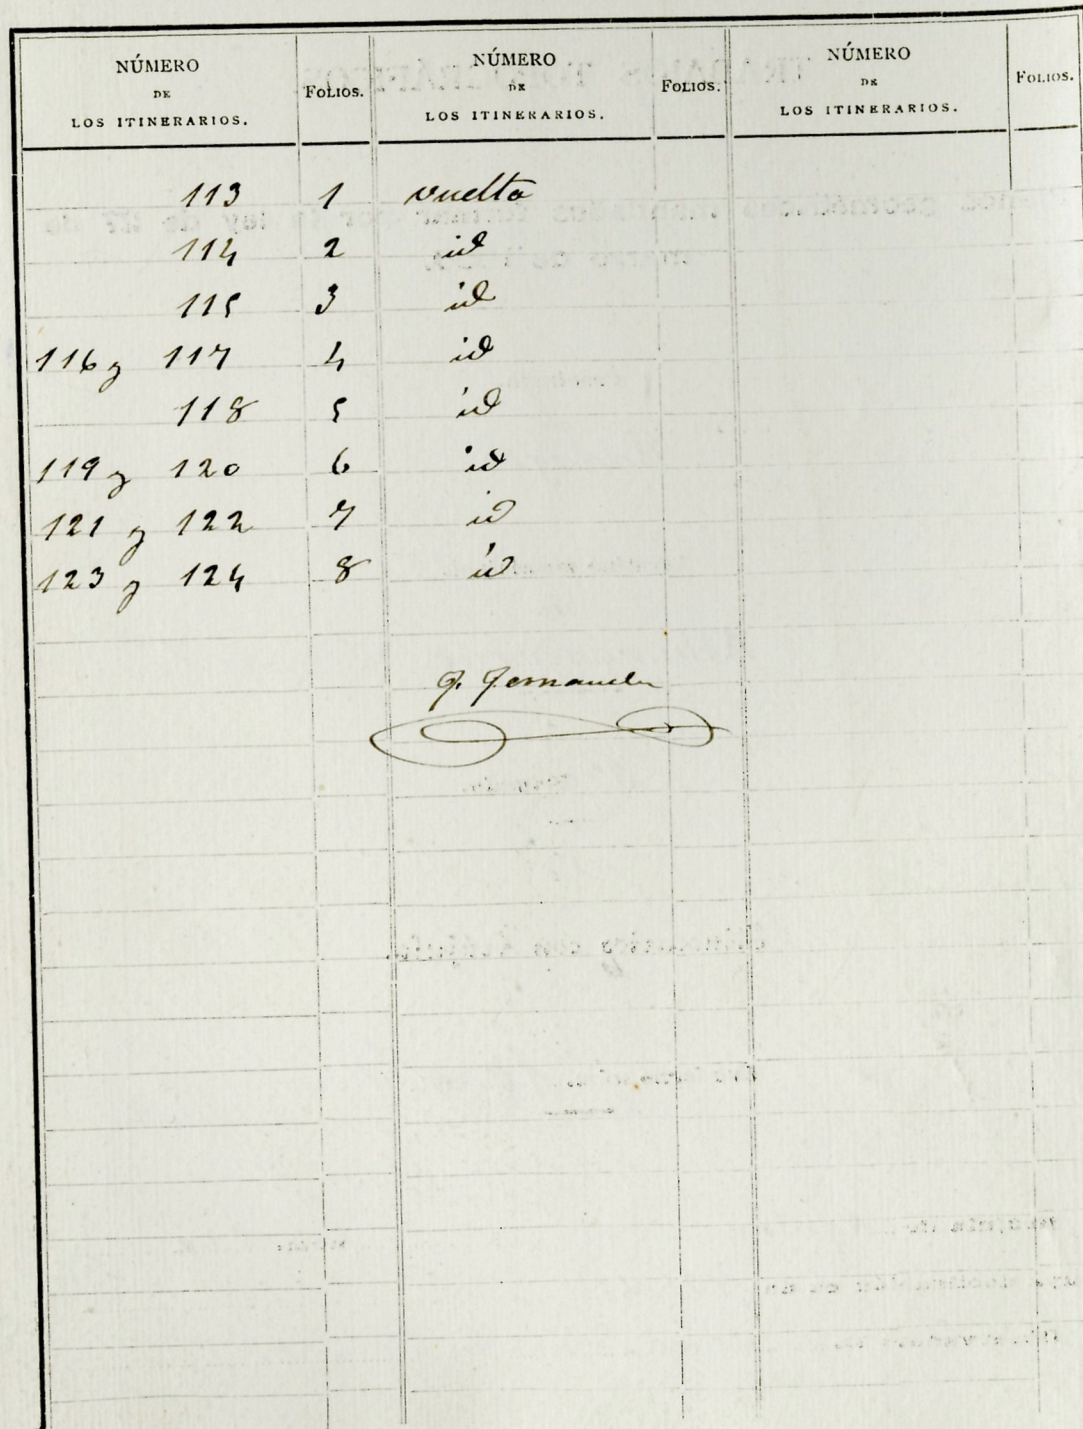 NÚMERO DE LOS ITINERARIOS. FOLIOS. NÚMERO DE LOS ITINERARIOS. FOLIOS. NÚMERO DE LOS ITINERARIOS. FOLIOS.
113 1 vuelta
114 2 id
115 3 id
116 y 117 4 id
118 5 id
119 y 120 6 id
121 y 122 7 id
123 y 124 8 id